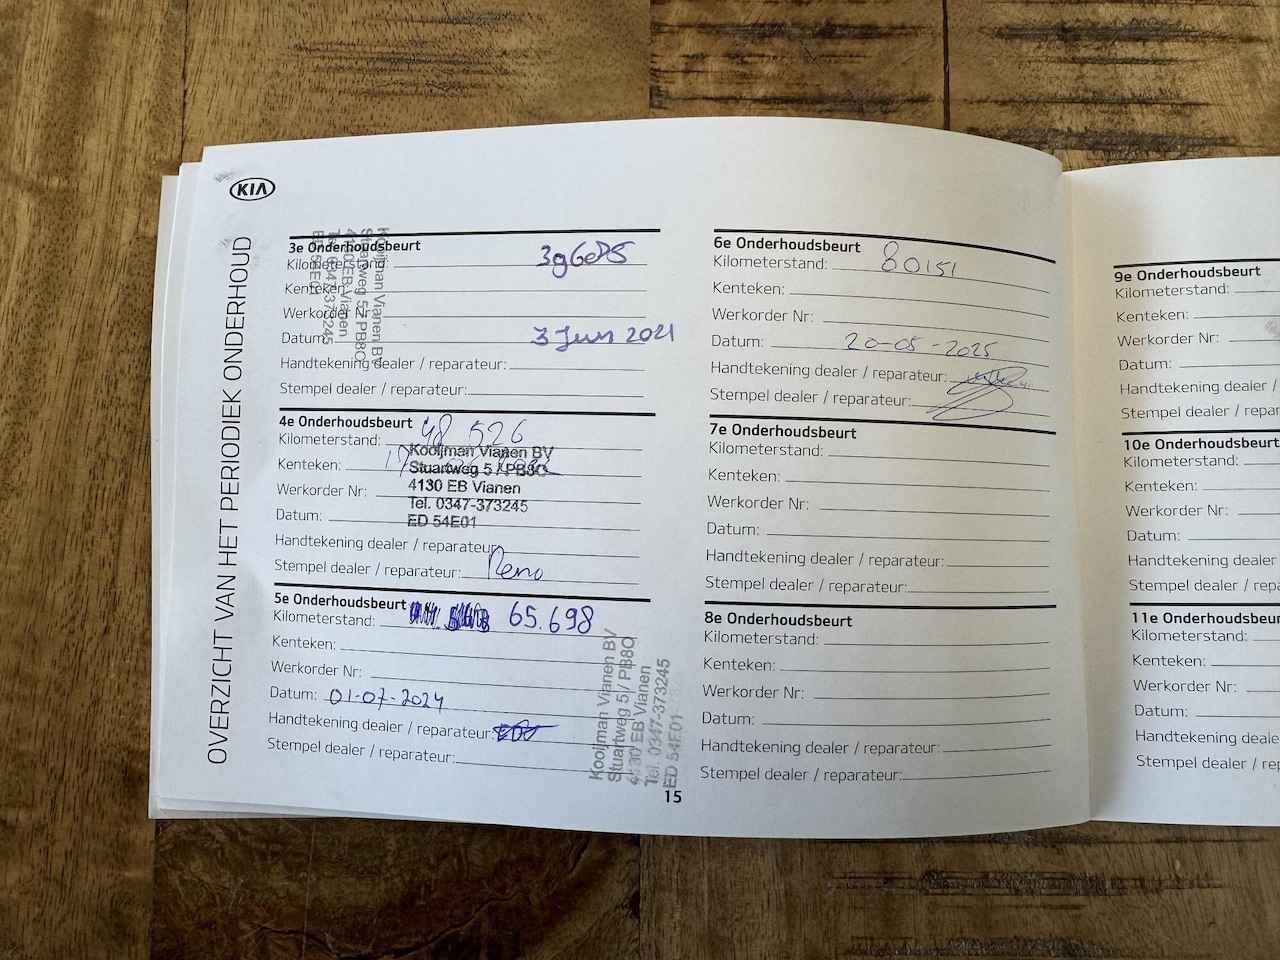 KIA
OVERZICHT VAN HET PERIODIEK ONDERHOUD
3e Onderhoudsbeurt
Kilometerstand:
Kenteken:
Werkorder Nr:
Datum: 3 Juni 2021
Handtekening dealer / reparateur:
Stempel dealer / reparateur:
Kooijman Vianen BV
Stuartweg 5 / PB8O
4130 EB Vianen
Tel. 0347-373245
ED 54E01
4e Onderhoudsbeurt
Kilometerstand: 48 526
Kenteken:
Werkorder Nr:
Datum:
Handtekening dealer / reparateur:
Stempel dealer / reparateur:
Kooijman Vianen BV
Stuartweg 5 / PB8O
4130 EB Vianen
Tel. 0347-373245
ED 54E01
5e Onderhoudsbeurt
Kilometerstand: 65.698
Kenteken:
Werkorder Nr:
Datum: 01-07-2024
Handtekening dealer / reparateur:
Stempel dealer / reparateur:
Kooijman Vianen BV
Stuartweg 5 / PB8O
4130 EB Vianen
Tel. 0347-373245
ED 54E01
15
6e Onderhoudsbeurt
Kilometerstand: 80151
Kenteken:
Werkorder Nr:
Datum: 20-05-2025
Handtekening dealer / reparateur:
Stempel dealer / reparateur:
7e Onderhoudsbeurt
Kilometerstand:
Kenteken:
Werkorder Nr:
Datum:
Handtekening dealer / reparateur:
Stempel dealer / reparateur:
8e Onderhoudsbeurt
Kilometerstand:
Kenteken:
Werkorder Nr:
Datum:
Handtekening dealer / reparateur:
Stempel dealer / reparateur:
9e Onderhoudsbeurt
Kilometerstand:
Kenteken:
Werkorder Nr:
Datum:
Handtekening dealer /
Stempel dealer / repar
10e Onderhoudsbeurt
Kilometerstand:
Kenteken:
Werkorder Nr:
Datum:
Handtekening dealer /
Stempel dealer / repa
11e Onderhoudsbeur
Kilometerstand:
Kenteken:
Werkorder Nr:
Datum:
Handtekening deale
Stempel dealer / rep